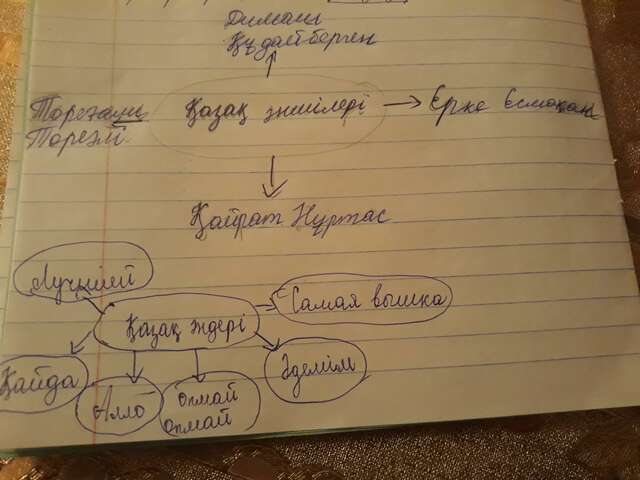 Димаш
Құдайберген
Төреғали
Төреәлі
Қазақ әншілері
Ерке Есмақан
Қайрат Нұртас
Лучший
Самая вышка
Қазақ әндері
Қайда
Алло
Әдемім
Оқмай
оқмай